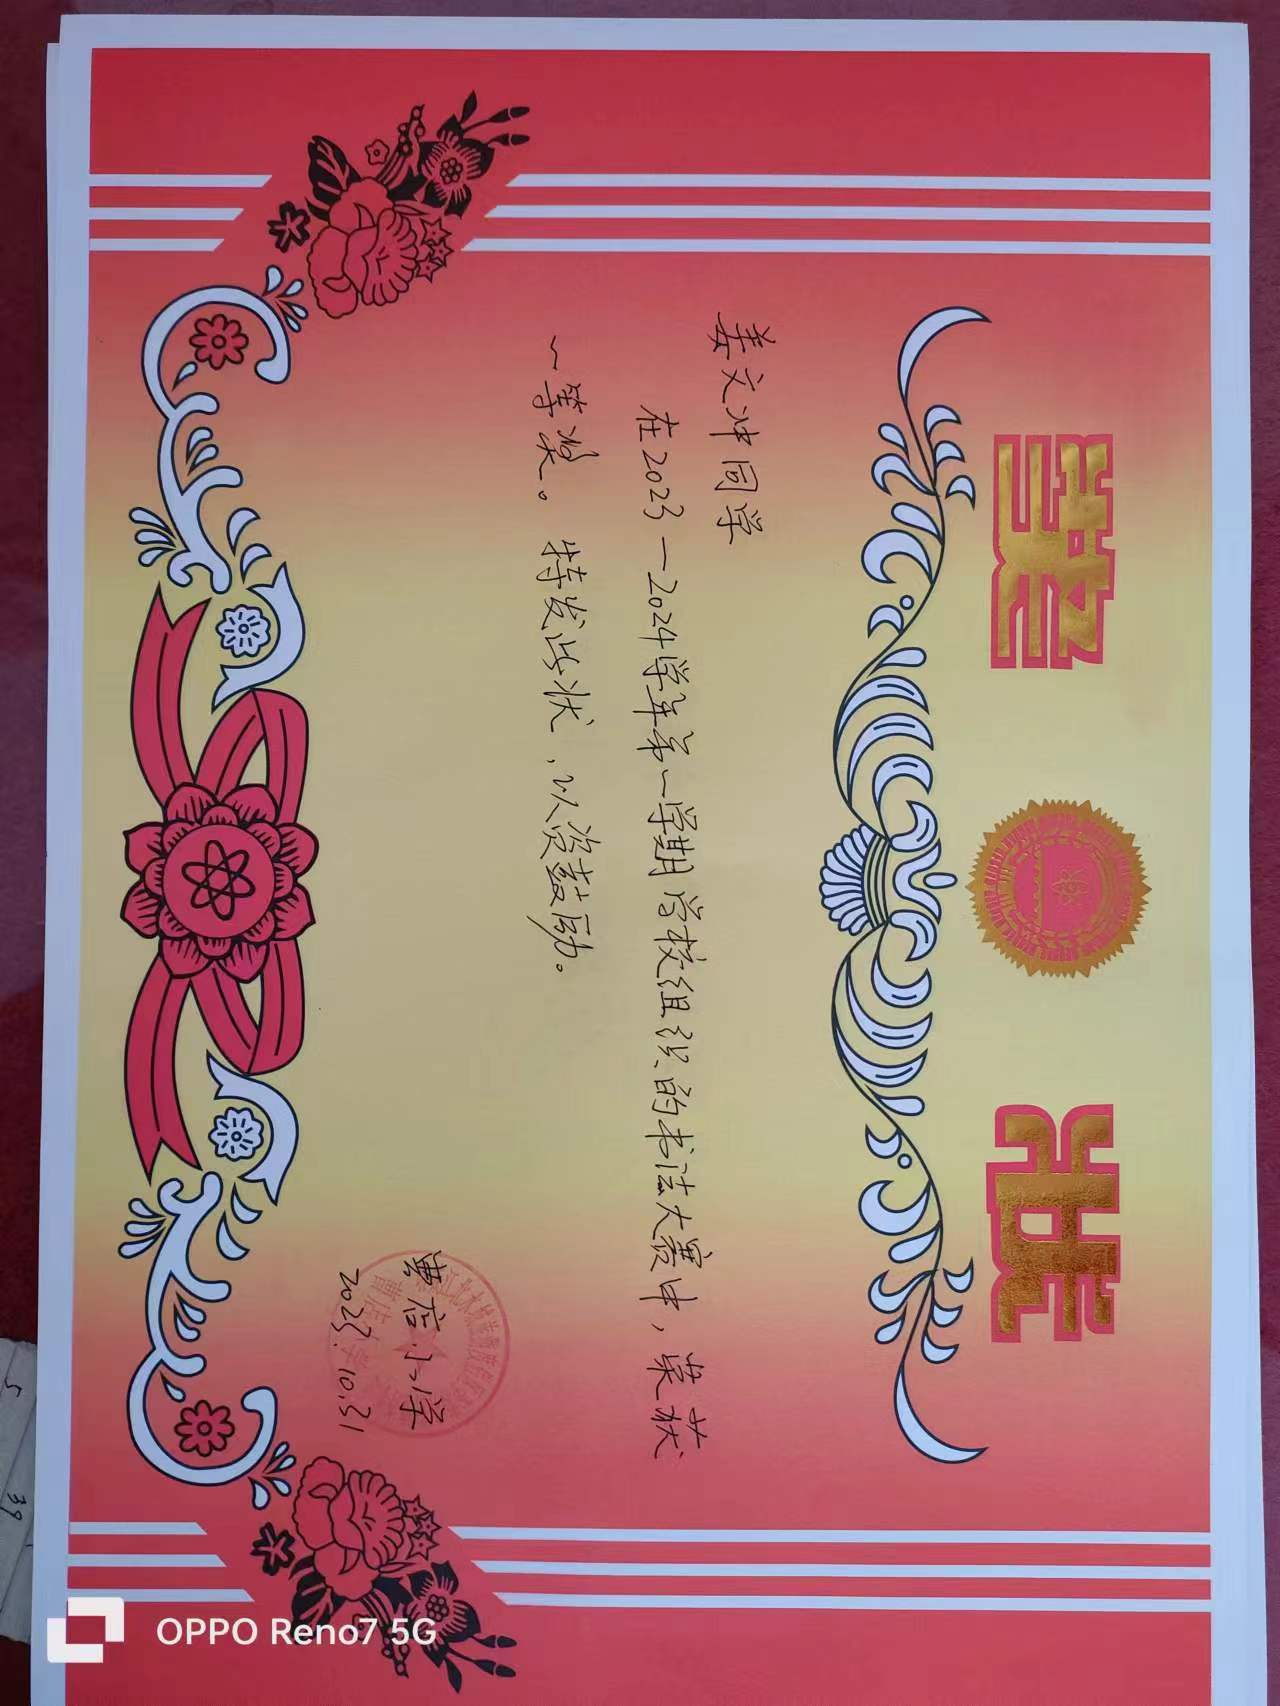 奖 状
姜文冲同学
在2023—2024学年第一学期学校组织的书法大赛中，荣获
一等奖。特发此状，以资鼓励。
曹店小学
2023.10.31
曹店小学
OPPO Reno7 5G